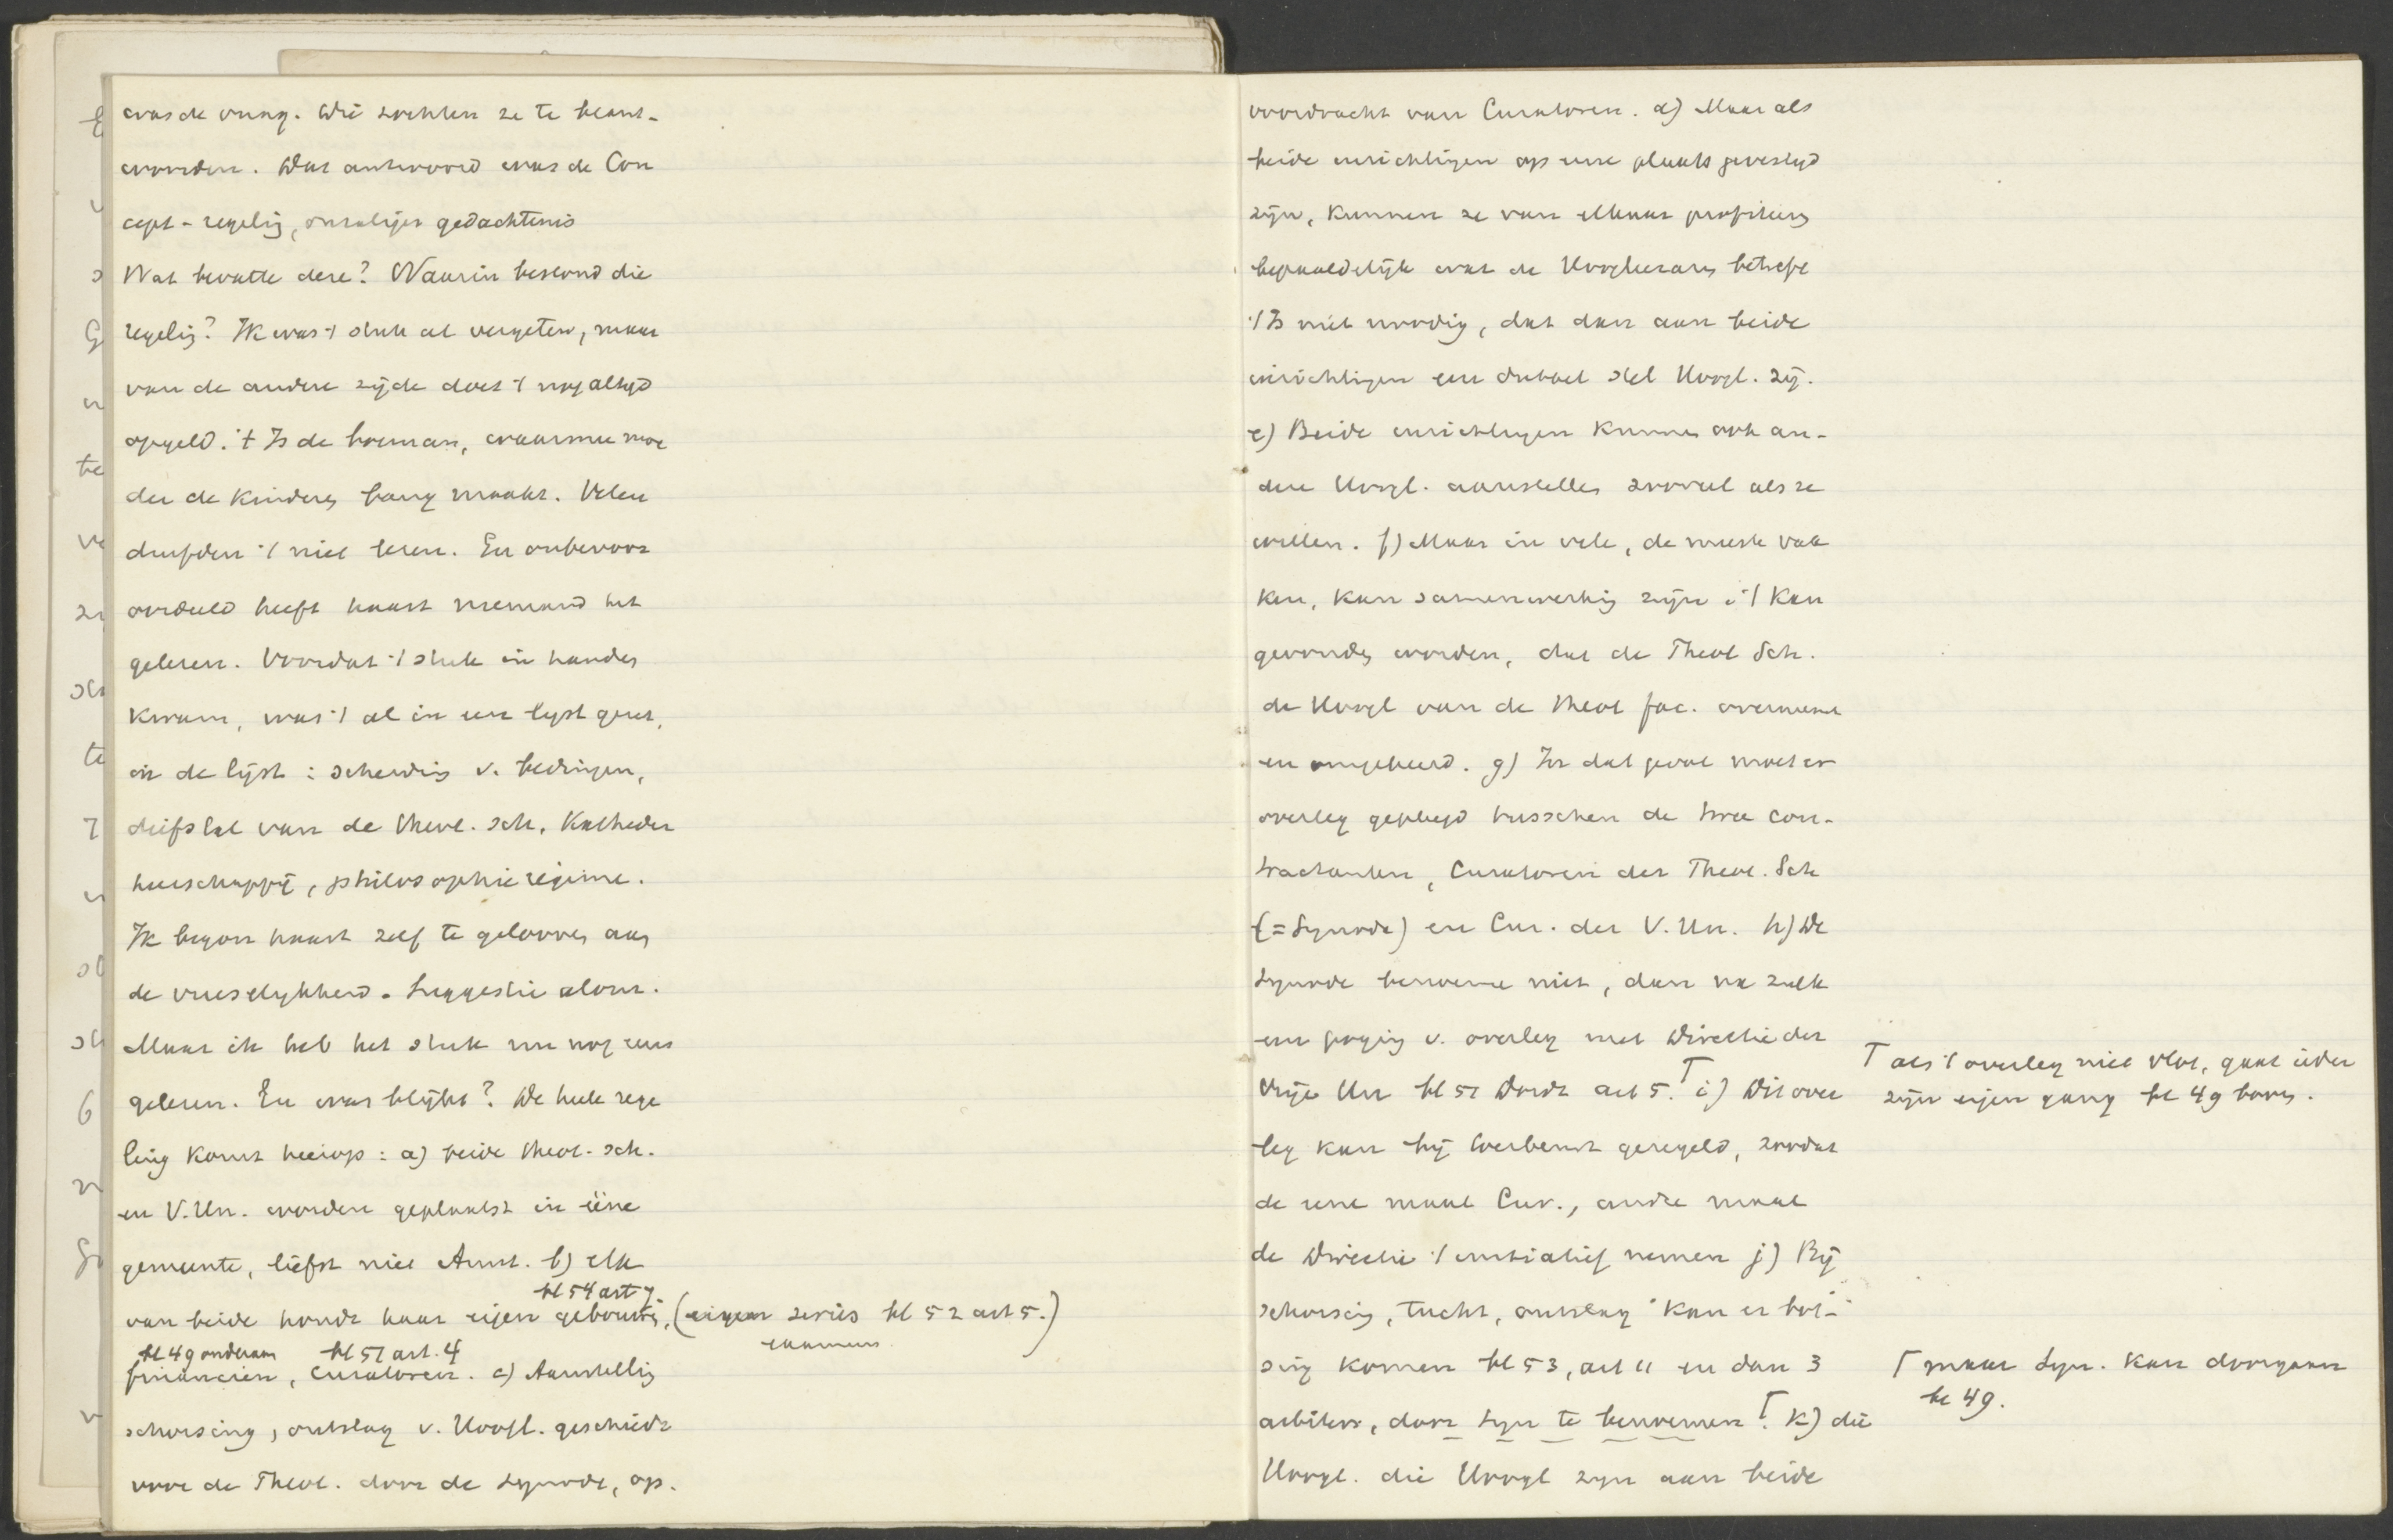 was de vraag. Wij zochten ze te beant-
woorden. Dat antwoord was de Con
cept-regeling, onzaliger gedachtenis
Wat bevatte deze? Waarin bestond die
regeling? Ik was 't stuk al vergeten, maar
van de andere zijde doet 't nog altijd
opgeld. 't Is de boeman, waarmee moe
der de kinderen bang maakt. Velen
durfden 't niet lezen. En onbevoor
oordeeld heeft haast niemand het
gelezen. Voordat 't stuk in handen
kwam, was 't al in een lijst gezet,
in de lijst: scheiding v. bedingen,
diefstal van de Theol. Sch. Katheder
heerschappij, philosophie régime.
Ik begon haast zelf te gelooven aan
de vreeselijkheid. Suggestie alom.
Maar ik heb het stuk nu nog eens
gelezen. En wat blijkt? De heele rege
ling komt hierop: a) beide Theol. Sch.
en V. Un. worden geplaatst in ééne
gemeente, liefst niet Amst. b) elk
bl 54 art 7.
van beide houdt haar eigen gebouwen, (eigen series bl 52 art 5.)
examens
bl 49 onderaan bl 51 art. 4
financien, Curatoren. c) Aanstelling
schorsing, ontslag v. Hoogl. geschiedt
voor de Theol. door de Synode, op
voordracht van Curatoren. d) Maar als
beide inrichtingen op eene plaats gevestigd
zijn, kunnen ze van elkaar profiteeren
bepaaldelijk wat de Hoogleeraren betreft
't Is niet noodig, dat dan aan beide
inrichtingen een dubbel stel Hoogl. zij.
e) Beide inrichtingen kunnen ook an-
dere Hoogl. aanstellen zooveel als ze
willen. f) Maar in vele, de meeste vak
ken, kan samenwerking zijn & 't kan
gevonden worden, dat de Theol Sch.
de Hoogl van de Theol fac. overneemt
en omgekeerd. g) In dat geval moet er
overleg gepleegd tusschen de twee con-
tractanten, Curatoren der Theol. Sch
(= Synode) en Cur. der V. Un. h) De
Synode benoeme niet, dan na zulk
een poging v. overleg met Directie der
Vrije Un bl 51 Derde art 5. ⌈ i) Dit over
⌈ als 't overleg niet vlot, gaat ieder
zijn eigen gang bl 49 boven.
leg kan bij Toerbeurt geregeld, zoodat
de eene maal Cur., andre maal
de Directie 't initiatief nemen j) Bij
schorsing, tucht, ontslag kan er bot-
sing komen bl 53, art 11 en dan 3
arbiters, door Syn te benoemen ⌈. k) die
⌈ maar Syn. kan doorgaan
bl 49.
Hoogl. die Hoogl zijn aan beide